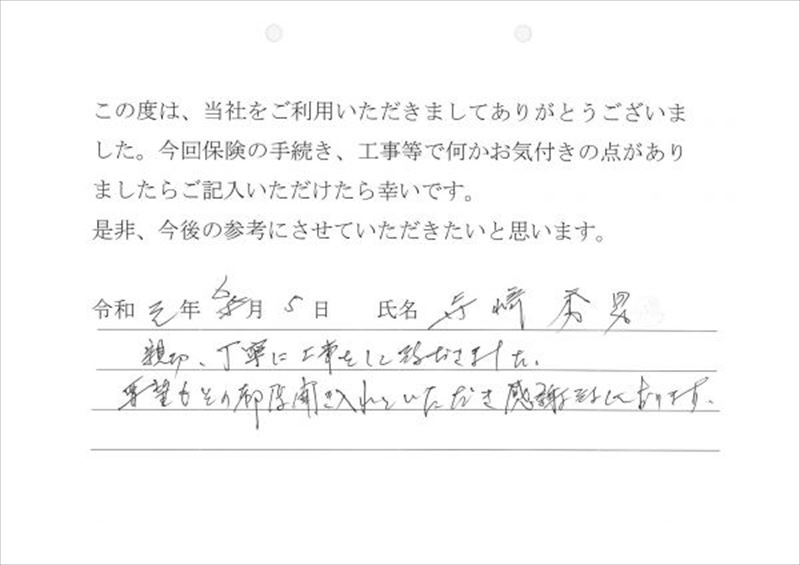 この度は、当社をご利用いただきましてありがとうございま
した。今回保険の手続き、工事等で何かお気付きの点があり
ましたらご記入いただけたら幸いです。
是非、今後の参考にさせていただきたいと思います。
令和 元年 月 5 日 氏名 崎 秀男
親切、丁寧に工事をして頂きました。
希望もその都度聞き入れていただき感謝致しております。